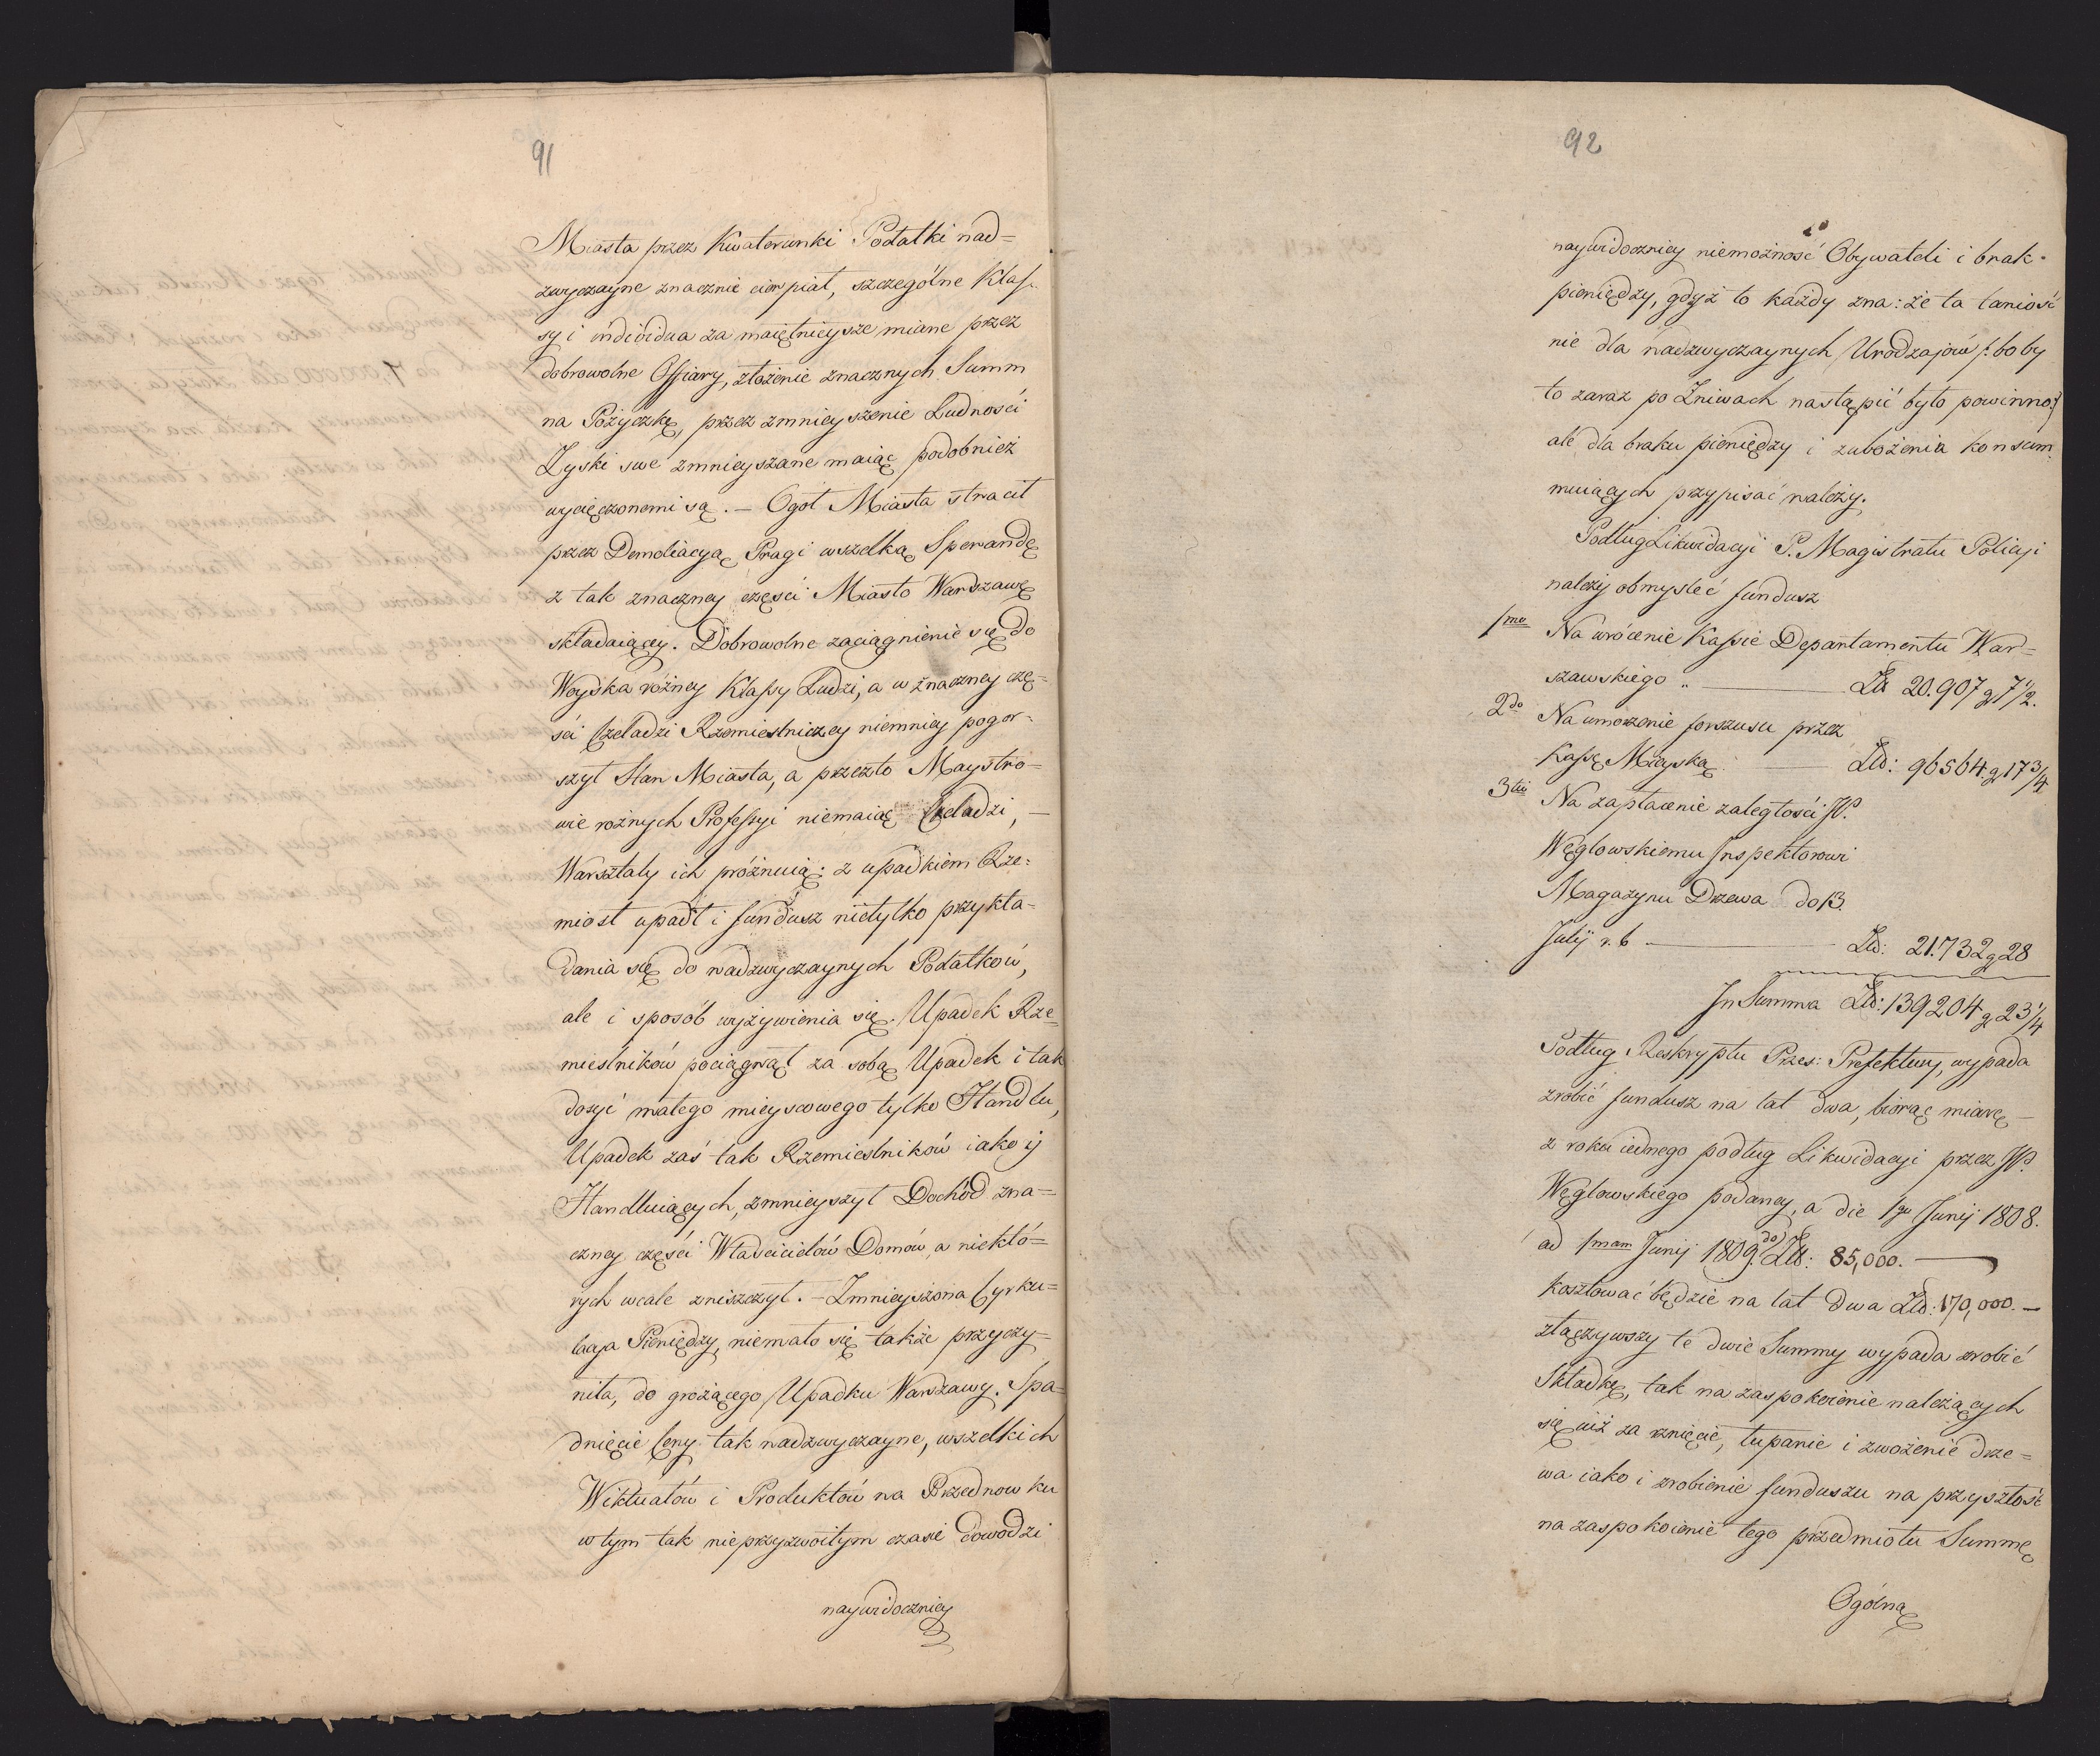 91
Miasta przez Kwaterunki Podatki nad=
zwyczayne znacznie cierpiał, szczególne Klas-
sy i indiwidua za maiętnieysze miane przez
dobrowolne Offiary, złożenie znacznych Summ
na Pożyczkę, przez zmnieyszenie Ludności
Zyski swe zmnieyszane maiąc podobnież
wycięczonemi są. – Ogół Miasta stracił
przez Demoliacyą Pragi wszelką Sperandę
z tak znaczney części Miasto Warszawę
składaiącey. Dobrowolne zaciągnienie się do
Woyska różney Klassy Ludzi, a w znaczney czę=
ści Czeladzi Rzemieslniczey niemniey pogor=
szył Stan Miasta, a przezto Maystro=
wie roznych Professyi niemaiąc Czeladzi, –
Warsztaty ich próżnuią: z upadkiem Rze=
miosł upadł i fundusz nietylko przykła=
dania się do nadzwyczaynych Podatków,
ale i sposób wyżywienia się. Upadek Rze=
mieslników pociągnął za sobą Upadek i tak
dosyć małego mieyscowego tylko Handlu,
Upadek zaś tak Rzemieslników iako ij
Handluiących, zmnieyszył Dochód zna=
czney części Właścicielów Domów, a niektó=
rych wcale zniszczył. – Zmnieyszona Cyrku=
lacya Pieniędzy, niemało się także przyczy=
niła, do grożącego Upadku Warszawy. Spa=
dnięcie Ceny tak nadzwyczayne, wszelkich
Wiktuałów i Produktów na Przednowku
w tym tak nieprzyzwoitym czasie dowodzi
naywidoczniey
92
naywidoczniey niemożność Obywateli i brak
pieniędzy, gdyż to każdy zna: że ta taniość
nie dla nadzwyczaynych Urodzajów /: boby
to zaraz po Żniwach nastąpić było powinno :/
ale dla braku pieniędzy i zubożenia konsum
muiących przypisać należy.
Podług Likwidacyi P. Magistratu Policyi
należy obmysleć fundusz
1mo Na wrócenie Kassie Departamentu War=
szawskiego .. — Zł 20.907 g 7 1/2.
2do Na umorzenie forszusu przez
Kassę Mieyską — Złł: 96564 g 17 3/4
3tio Na zapłacenie zaległości JP.
Węglowskiemu Inspektorowi
Magazynu Drzewa do 13.
Julij r. b — Złł: 21.732 g 28
In Summa Złł: 139204 g 23 1/4
Podług Reskryptu Przes: Prefektury, wypada
zrobić fundusz na lat dwa, biorąc miarę –
z roku iednego podług Likwidacyi przez JP.
Węglowskiego podaney, a die 1ma Junij 1808.
ad 1mam Junij 1809. do Złł: 85,000. —
kosztować będzie na lat dwa Złł: 170,000. –
złączywszy te dwie Summy wypada zrobić
Składkę, tak na zaspokoienie należących
się iuż za rznięcie, łupanie i zwożenie drze=
wa iako i zrobienie funduszu na przyszłość
na zaspokoienie tego przedmiotu Summę
Ogólną